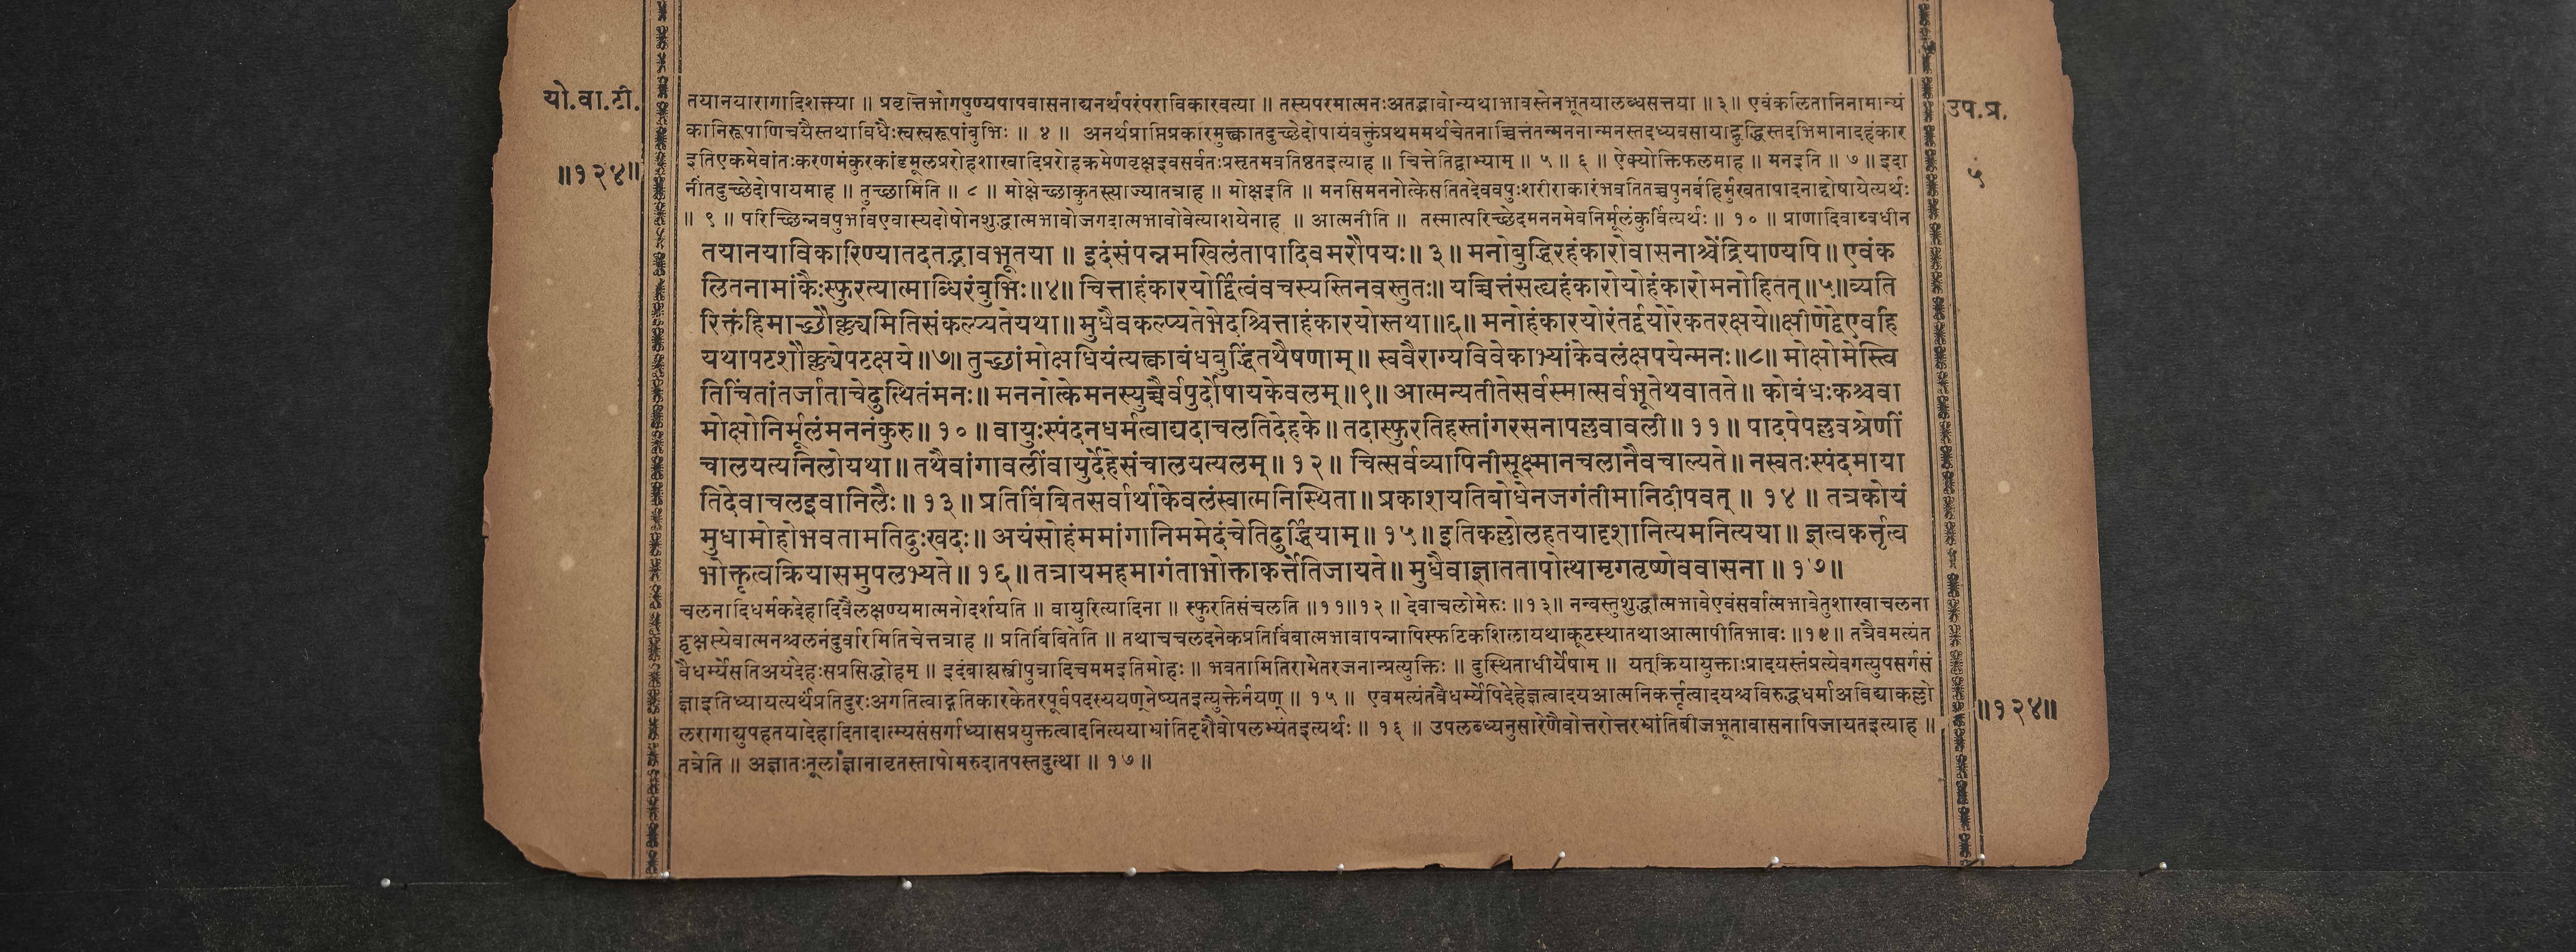 यो.वा.टी.
॥१२४॥
तयानयारागादिशक्तया ॥ प्रवृत्तिभोगपुण्यपापवासनाद्यनर्थपरंपराविकारवत्या ॥ तस्यपरमात्मनःअतद्भावोन्यथाभावस्तेनभूतयालब्धसत्तया ॥ ३ ॥ एवंकलितानिनामान्यं
कानिरूपाणिचयैस्तथाविधैःस्वस्वरूपांबुभिः ॥ ४ ॥ अनर्थप्राप्तिप्रकारमुक्त्वातदुच्छेदोपायंवक्तुंप्रथममर्थचेतनाच्चित्तंतन्मननान्मनस्तदध्यवसायाद्बुद्धिस्तदभिमानादहंकार
इतिएकमेवांतःकरणमंकुरकांडमूलप्ररोहशाखादिप्ररोहक्रमेणवृक्षइवसर्वतःप्रसृतमवतिष्ठतइत्याह ॥ चित्तेतिद्वाभ्याम् ॥ ५ ॥ ६ ॥ ऐक्योक्तिफलमाह ॥ मनइति ॥ ७ ॥ इदा
नींतदुच्छेदोपायमाह ॥ तुच्छामिति ॥ ८ ॥ मोक्षेच्छाकुतस्त्याज्यातत्राह ॥ मोक्षइति ॥ मनसिमननोत्केसतितदेववपुःशरीराकारंभवतितच्चपुनर्बहिर्मुखतापादनाद्दोषायेत्यर्थः
॥ ९ ॥ परिच्छिन्नवपुर्भावएवास्यदोषोनशुद्धात्मभावोजगदात्मभावोवेत्याशयेनाह ॥ आत्मनीति ॥ तस्मात्परिच्छेदमननमेवनिर्मूलंकुर्वित्यर्थः ॥ १० ॥ प्राणादिवाय्वधीन
तयानयाविकारिण्यातदतद्भावभूतया ॥ इदंसंपन्नमखिलंतापादिवमरौपयः ॥ ३ ॥ मनोबुद्धिरहंकारोवासनाश्चेंद्रियाण्यपि ॥ एवंक
लितनामांकैःस्फुरत्यात्माब्धिरंबुभिः ॥४॥ चित्ताहंकारयोर्द्वित्वंवचस्यस्तिनवस्तुतः ॥ यच्चित्तंसह्यहंकारोयोहंकारोमनोहितत् ॥५॥ व्यति
रिक्तंहिमाच्छौक्ल्यमितिसंकल्प्यतेयथा ॥ मुधैवकल्प्यतेभेदश्चित्ताहंकारयोस्तथा ॥६॥ मनोहंकारयोरंतर्द्वयोरेकतरक्षये ॥ क्षीणेद्वेएवहि
यथापटशौक्ल्येपटक्षये ॥७॥ तुच्छांमोक्षधियंत्यक्त्वाबंधबुद्धिंतथैषणाम् ॥ स्ववैराग्यविवेकाभ्यांकेवलंक्षपयेन्मनः ॥८॥ मोक्षोमेस्त्वि
तिचिंतांतर्जाताचेदुत्थितंमनः ॥ मननोत्केमनस्युच्चैर्वपुर्दोषायकेवलम् ॥९॥ आत्मन्यतीतेसर्वस्मात्सर्वभूतेथवातते ॥ कोबंधःकश्चवा
मोक्षोनिर्मूलंमननंकुरु ॥ १० ॥ वायुःस्पंदनधर्मत्वाद्यदाचलतिदेहके ॥ तदास्फुरतिहस्तांगरसनापल्लवावली ॥ ११ ॥ पादपेपल्लवश्रेणीं
चालयत्यनिलोयथा ॥ तथैवांगावलींवायुर्देहेसंचालयत्यलम् ॥ १२ ॥ चित्सर्वव्यापिनीसूक्ष्मानचलानैवचाल्यते ॥ नस्वतःस्पंदमाया
तिदेवाचलइवानिलैः ॥ १३ ॥ प्रतिबिंबितसर्वार्थाकेवलंस्वात्मनिस्थिता ॥ प्रकाशयतिबोधेनजगंतीमानिदीपवत् ॥ १४ ॥ तत्रकोयं
मुधामोहोभवतामतिदुःखदः ॥ अयंसोहंममांगानिममेदंचेतिदुर्द्धियाम् ॥ १५ ॥ इतिकल्लोलहतयादृशानित्यमनित्यया ॥ ज्ञत्वकर्त्तृत्व
भोक्तृत्वक्रियासमुपलभ्यते ॥ १६ ॥ तत्रायमहमागंताभोक्ताकर्त्तेतिजायते ॥ मुधैवाज्ञाततापोत्थामृगतृष्णेववासना ॥ १७ ॥
चलनादिधर्मकदेहादिवैलक्षण्यमात्मनोदर्शयति ॥ वायुरित्यादिना ॥ स्फुरतिसंचलति ॥११॥१२॥ देवाचलोमेरुः ॥१३॥ नन्वस्तुशुद्धात्मभावेएवंसर्वात्मभावेतुशाखाचलना
द्वृक्षस्येवात्मनश्चलनंदुर्वारमितिचेत्तत्राह ॥ प्रतिबिंबितेति ॥ तथाचचलदनेकप्रतिबिंबात्मभावापन्नापिस्फटिकशिलायथाकूटस्थातथाआत्मापीतिभावः ॥१४॥ तत्रैवमत्यंत
वैधर्म्येसतिअयंदेहःसप्रसिद्धोहम् ॥ इदंबाह्यस्त्रीपुत्रादिचममइतिमोहः ॥ भवतामितिरामेतरजनान्प्रत्युक्तिः ॥ दुस्थिताधीर्येषाम् ॥ यत्क्रियायुक्ताःप्रादयस्तंप्रत्येवगत्युपसर्गसं
ज्ञाइतिध्यायत्यर्थंप्रतिदुरःअगतित्वाद्गतिकारकेतरपूर्वपदस्ययण्नेष्यतइत्युक्तेर्नयण् ॥ १५ ॥ एवमत्यंतवैधर्म्येपिदेहेज्ञत्वादयआत्मनिकर्त्तृत्वादयश्चविरुद्धधर्माअविद्याकल्लो
लरागाद्युपहतयादेहादितादात्म्यसंसर्गाध्यासप्रयुक्तत्वादनित्ययाभ्रांतिदृशैवोपलभ्यंतइत्यर्थः ॥ १६ ॥ उपलब्ध्यनुसारेणैवोत्तरोत्तरभ्रांतिबीजभूतावासनापिजायतइत्याह ॥
तत्रेति ॥ अज्ञातःतूलाज्ञानावृतस्तापोमरुदातपस्तदुत्था ॥ १७ ॥
उप.प्र.
५
॥१२४॥